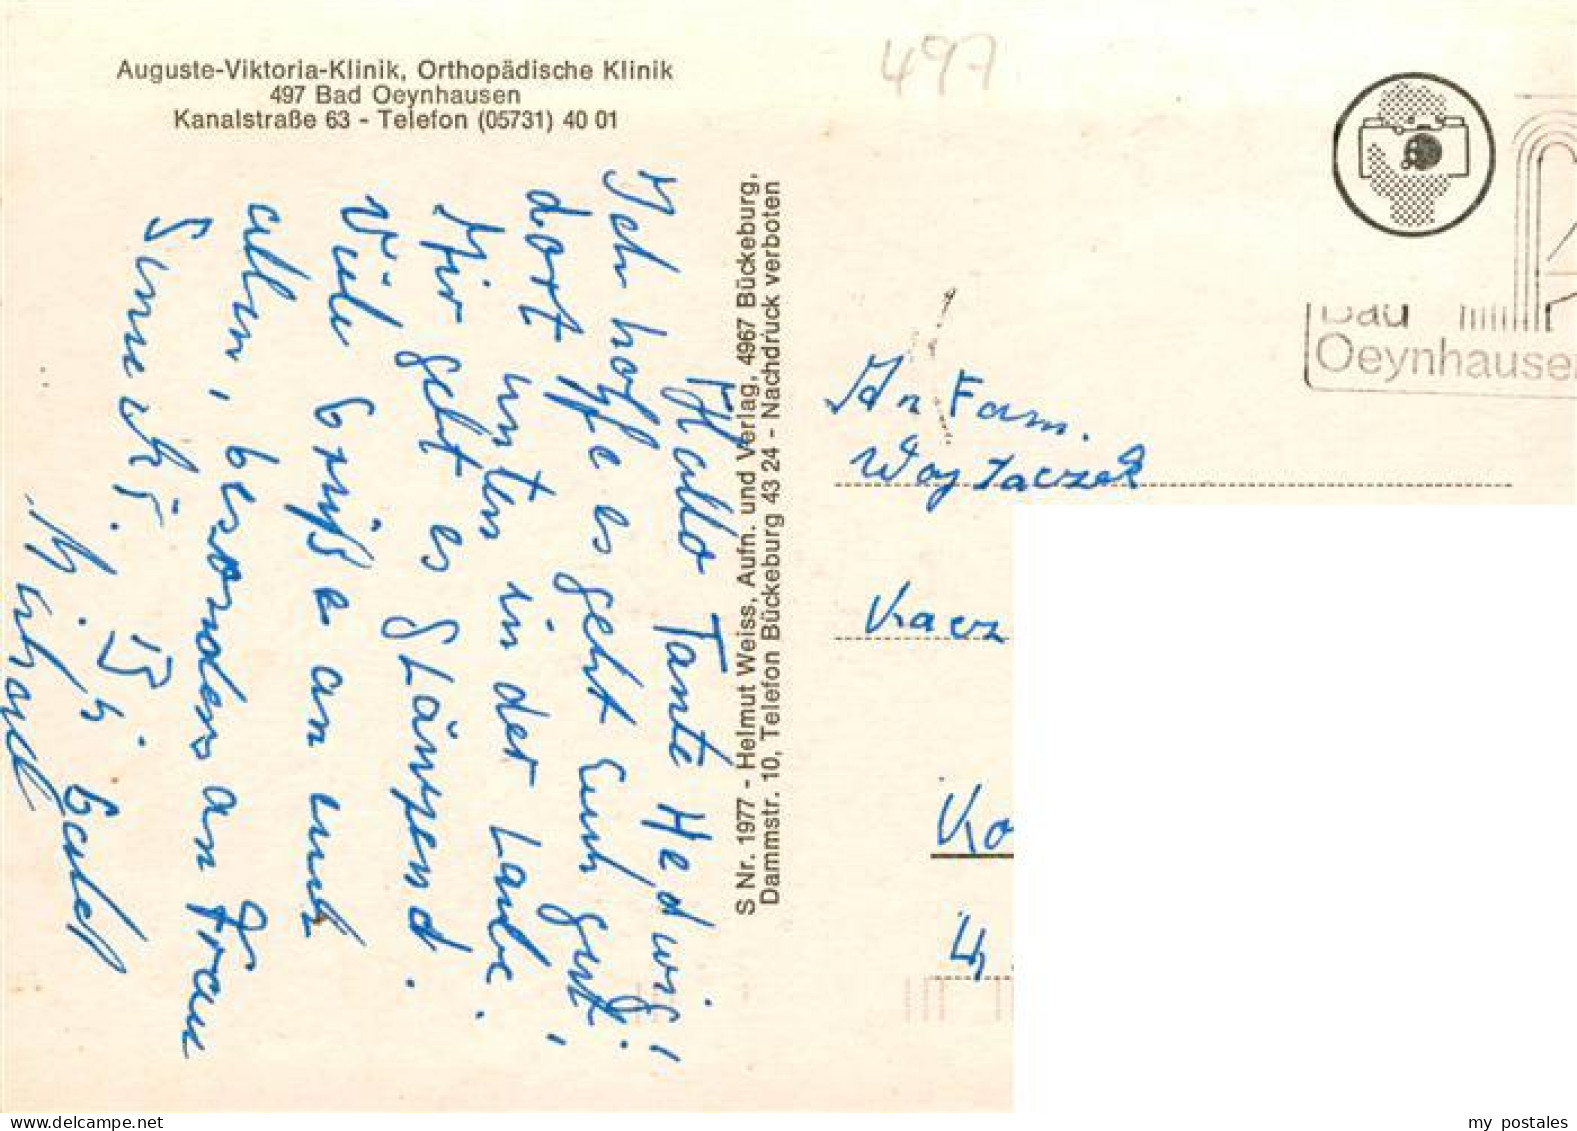 Auguste-Viktoria-Klinik, Orthopädische Klinik
497 Bad Oeynhausen
Kanalstraße 63 - Telefon (05731) 40 01
497
Hallo Tante Hedwig!
Ich hoffe es geht Euch gut,
dort unten in der Laube.
Mir geht es Glänzend.
Viele Grüße an euch
allen, besonders an Frau
Bis bald
S Nr. 1977 - Helmut Weiss, Aufn. und Verlag, 4967 Bückeburg,
Dammstr. 10, Telefon Bückeburg 43 24 - Nachdruck verboten
Bad
Oeynhausen
An Fam.
Woytaczek
Kacz
Ko
4
my postales